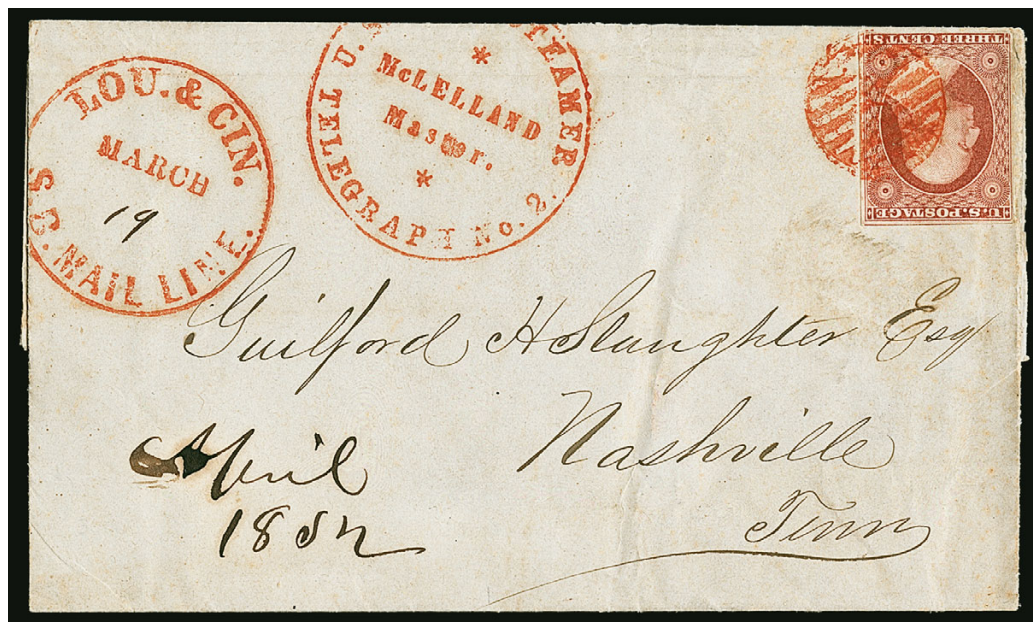 LOU. & CIN.
MARCH
19
U.S. MAIL LINE.
U. STEAMER
*
McLELLAND
Master.
*
TELEGRAPH No. 2.
THREE CENTS
U.S. POSTAGE
Guilford H Slaughter Esq
Nashville
Tenn
April
1852